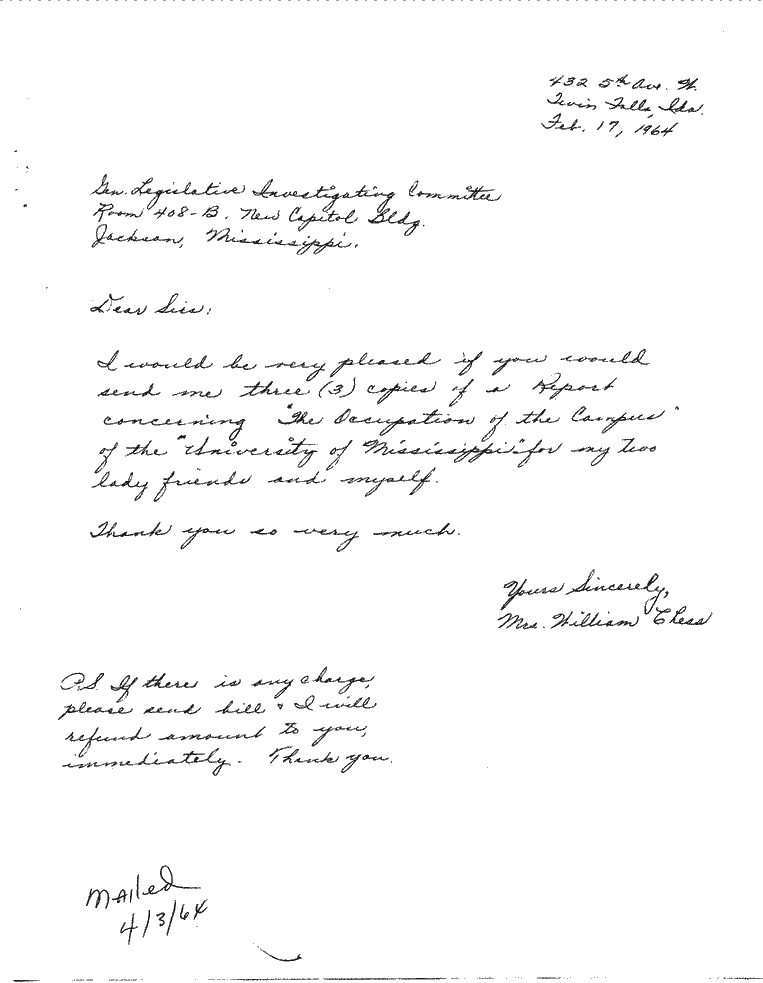 432 5th Ave. W.
Twin Falls, Ida.
Feb. 17, 1964
Gen. Legislative Investigating Committee
Room 408-B. New Capitol Bldg.
Jackson, Mississippi.
Dear Sirs:
I would be very pleased if you would
send me three (3) copies of a Report
concerning "The Occupation of the Campus"
of the "University of Mississippi" for my two
lady friends and myself.
Thank you so very much.
Yours Sincerely,
Mrs. William Chess
P.S. If there is any charge,
please send bill & I will
refund amount to you,
immediately. Thank you.
Mailed
4/3/64